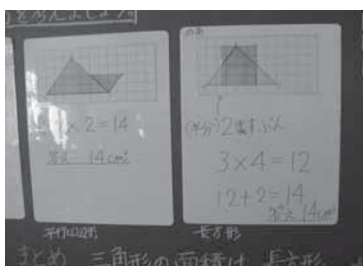 を考えましょう。
× 2 = 14
答え 14cm²
平行四辺形
(半分) 2ますぶん
3 × 4 = 12
12 + 2 = 14
答え 14cm²
長方形
まとめ 三角形の面積は 長方形